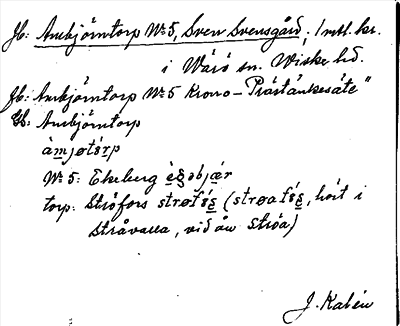 Jb: Ambjörntorp No 5, Sven Svensgård; 1 mtl. kr.
i Wårö sn. Wiske hd.
Jb: Ambjörntorp No 5 Krono- Prästänkesäte"
Gb: Ambjörntorp
àmjøtórp
No 5: Ekeberg
torp: Strófors strøfós (strøafós, hört i
Stråvalla, vid ån Stróa)
J. Kalén